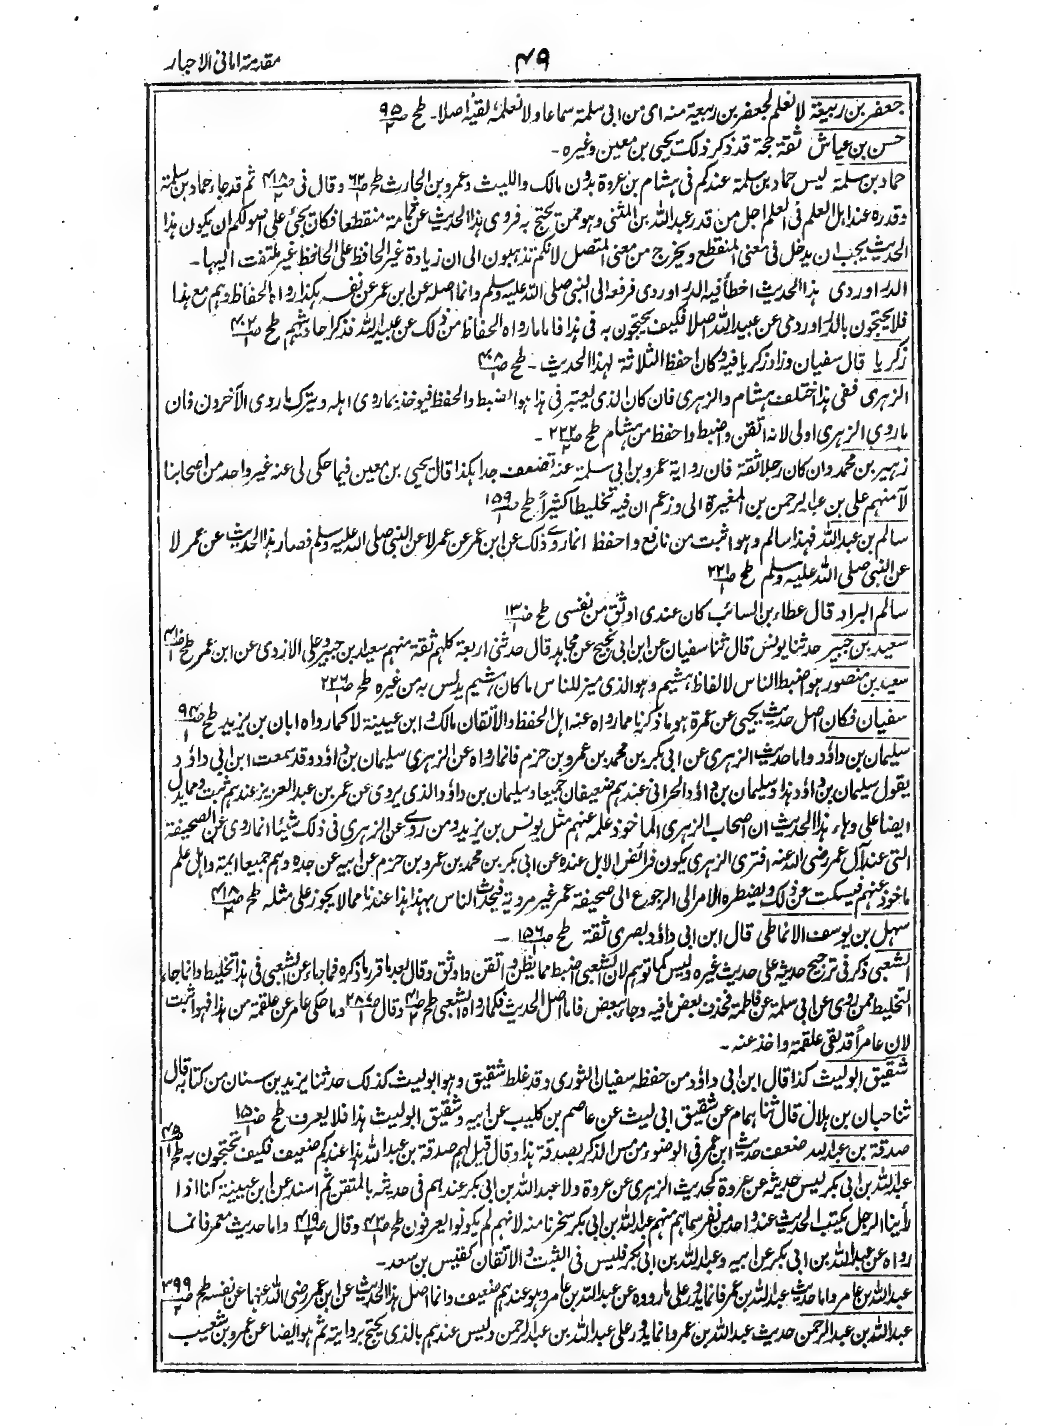 مقدمة امانی الاحبار
۴۹
جعفر بن ربیعة لا نعلم لجعفر بن ربیعة منه ای من ابی سلمة سماعا ولا نعلمه لقیه اصلا۔ طح ص۹۵/۲
حسن بن عیاش ثقة حجة قد ذکر ذلک یحیی بن معین وغیره۔
حماد بن سلمة لیس حماد بن سلمة عندکم فی هشام بن عروة بدون مالک واللیث وعمرو بن الحارث طح ص۶۲/۱ وقال فی ص۴۱۸/۲ ثم قد جاء حماد بن سلمة
وقدره عند اهل العلم فی العلم اجل من قدر عبدالله بن المثنی وهو ممن یحتج به فروی هذا الحدیث عن ثمامة منقطعا فکان یجئ علی اصولکم ان یکون هذا
الحدیث یجب ان یدخل فی معنی المنقطع ویخرج من معنی المتصل لانکم تذهبون الی ان زیادة غیر الحافظ علی الحافظ غیر ملتفت الیها۔
الدراوردی هذا الحدیث اخطأ فیه الدراوردی فرفعه الی النبی صلی الله علیه وسلم وانما اصله عن ابن عمر عن نفسه هکذا رواه الحفاظ وهم مع هذا
فلا یحتجون بالدراوردی عن عبیدالله اصلا فکیف یحتجون به فی هذا فاما ما رواه الحفاظ من ذلک عن عبیدالله فذکر احادیثهم طح ص۴۰۲/۱
زکریا قال سفیان وزاد زکریا فیه وکان احفظ الثلاثة لهذا الحدیث۔ طح ص۴۰۸/۱
الزهری ففی هذا اختلف هشام والزهری فان کان الذی یعتبر فی هذا هو الضبط والحفظ فیوخذ بما روی اهله ویترک ما روی الآخرون فان
ما روی الزهری اولی لانه اتقن واضبط واحفظ من هشام طح ص۲۲۲/۲ ۔
زهیر بن محمد وان کان رجلا ثقة فان روایة عمرو بن ابی سلمة عنه تضعف جدا هکذا قال یحیی بن معین فیما حکی لی عنه غیر واحد من اصحابنا
منهم علی بن عبدالرحمن بن المغیرة الی وزعم ان فیه تخلیطا کثیراً طح ص۱۵۹/۱
سالم بن عبدالله فهذا سالم وهو اثبت من نافع واحفظ انما روی ذلک عن ابن عمر عن عمر لا عن النبی صلی الله علیه وسلم فصار هذا الحدیث عن عمر لا
عن النبی صلی الله علیه وسلم طح ص۲۲۱/۲
سالم البراد قال عطاء بن السائب کان عندی اوثق من نفسی طح ص۱۳/۱
سعید بن جبیر حدثنا یونس قال ثنا سفیان عن ابن ابی نجیح عن مجاهد قال حدثنی اربعة کلهم ثقة منهم سعید بن جبیر وعلی الازدی عن ابن عمر طح
سعید بن منصور هو اضبط الناس لالفاظ هشیم وهو الذی میز للناس ما کان هشیم یدلس به من غیره طح ص۲۲۶/۲
سفیان فکان اصل حدیث یحیی عن عمرة هو ما ذکرنا مما رواه عنه اهل الحفظ والاتقان مالک وابن عیینة لا کما رواه ابان بن یزید طح ص۹۴/۲
سلیمان بن داؤد واما حدیث الزهری عن ابی بکر بن محمد بن عمرو بن حزم فانما رواه عن الزهری سلیمان بن داؤد وقد سمعت ابن ابی داؤد
یقول سلیمان بن داؤد هذا وسلیمان بن داؤد الحرانی عندهم ضعیفان جمیعا وسلیمان بن داؤد الذی یروی عن عمر بن عبدالعزیز عندهم ثبت ومما یدل
ایضا علی وهاء هذا الحدیث ان اصحاب الزهری الماخوذ علمه عنهم مثل یونس بن یزید ومن روی عن الزهری فی ذلک شیئا انما روی عن الصحیفة
التی عند آل عمر رضی الله عنه افتری الزهری یکون فرائض الابل عنده عن ابی بکر بن محمد بن عمرو بن حزم عن ابیه عن جده وهم جمیعا ائمة واهل علم
ماخوذ عنهم فیسکت عن ذلک ویضطره الامر الی الرجوع الی صحیفة عمر غیر مرویة فیحدث الناس بهذا هذا عندنا مما لا یجوز علی مثله طح ص۴۱۸/۲
سهل بن یوسف الانماطی قال ابن ابی داؤد بصری ثقة طح ص۱۵۶/۱ ۔
الشعبی ذکر فی ترجیح حدیثه علی حدیث غیره ولیس کما توهم لان الشعبی اضبط مما یظن واتقن واوثق وقال بعد ما قرر ما ذکره فما جاء عن الشعبی فی هذا تخلیط وانما جاء
التخلیط ممن روی عن ابی سلمة عن فاطمة فحذف بعض ما فیه وجاء ببعض فاما اصل الحدیث فکما رواه الشعبی طح ص۴۱/۲ وقال ص۲۸۷/۱ وما حکی عامر عن علقمة من هذا فهو اثبت
لان عامراً قد لقی علقمة واخذ عنه۔
شقیق ابو لیث کذا قال ابن ابی داؤد من حفظه سفیان الثوری وقد غلط شقیق وهو ابو لیث کذلک حدثنا یزید بن سنان من کتابه قال
ثنا حبان بن هلال قال ثنا همام عن شقیق ابی لیث عن عاصم بن کلیب عن ابیه وشقیق ابو لیث هذا فلا یعرف طح ص۱۵۰/۱
صدقة بن عبدالله ضعف حدیث ابن عمر فی الوضوء من مس الذکر بصدقة هذا وقال قیل لهم صدقة بن عبدالله هذا عندکم ضعیف فکیف تحتجون به طح ص۴۵/۱
عبدالله بن ابی بکر لیس حدیثه عن عروة کحدیث الزهری عن عروة ولا عبدالله بن ابی بکر عندهم فی حدیثه بالمتقن ثم اسند عن ابن عیینة کنا اذا
رأینا الرجل یکتب الحدیث عند واحد من نفر سماهم منهم عبدالله بن ابی بکر سخرنا منه لانهم لم یکونوا یعرفون طح ص۴۳/۱ وقال ص۴۱۹/۲ واما حدیث معمر فانما
رواه عن عبدالله بن ابی بکر عن ابیه وعبدالله بن ابی بکر فلیس فی الثبت والاتقان کقیس بن سعد۔
عبدالله بن عامر واما حدیث عبدالله بن عمر فانما یدور علی ما رووه عن عبدالله بن عامر وهو عندهم ضعیف وانما اصل هذا الحدیث عن ابن عمر رضی الله عنهما عن نفسه طح ص۳۹۹/۲
عبدالله بن عبدالرحمن حدیث عبدالله بن عمرو انما یدور علی عبدالله بن عبدالرحمن ولیس عندهم بالذی یحتج بروایته ثم هو ایضا عن عمرو بن شعیب